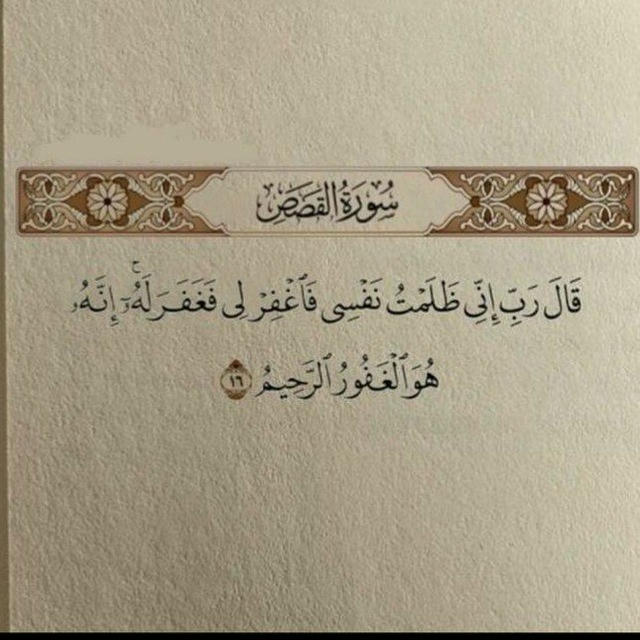 سُورَةُ القَصَصِ
قَالَ رَبِّ إِنِّي ظَلَمْتُ نَفْسِي فَٱغْفِرْ لِي فَغَفَرَ لَهُۥٓۚ إِنَّهُۥ
هُوَ ٱلْغَفُورُ ٱلرَّحِيمُ ١٦